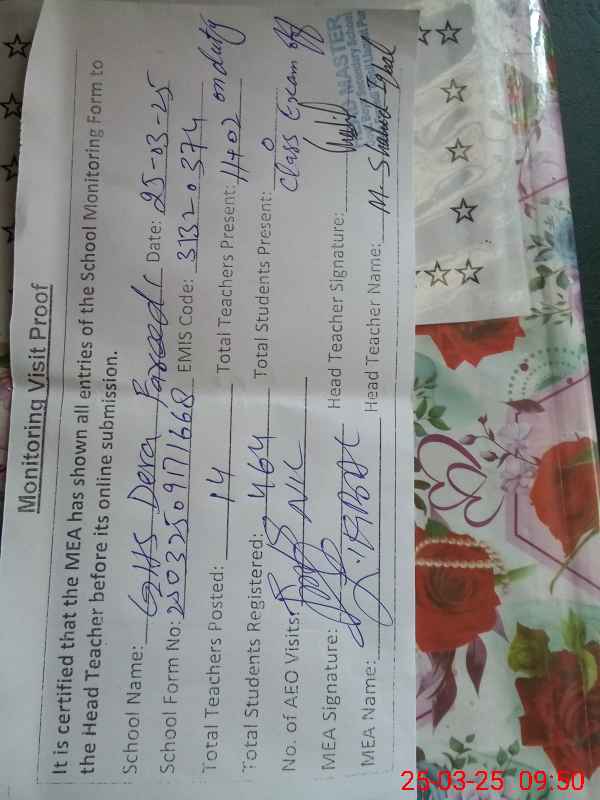 Monitoring Visit Proof
It is certified that the MEA has shown all entries of the School Monitoring Form to
the Head Teacher before its online submission.
School Name: GHS Dera Date: 25-03-25
School Form No: EMIS Code: 31320374
Total Teachers Posted: 14 Total Teachers Present: 11+02 on duty
Total Students Registered: 464 Total Students Present: 0
Class Exam off
No. of AEO Visits: NIL
MEA Signature: Head Teacher Signature:
MASTER
MEA Name: IQBAL Head Teacher Name: M. Shahid Iqbal
25-03-25 09:50